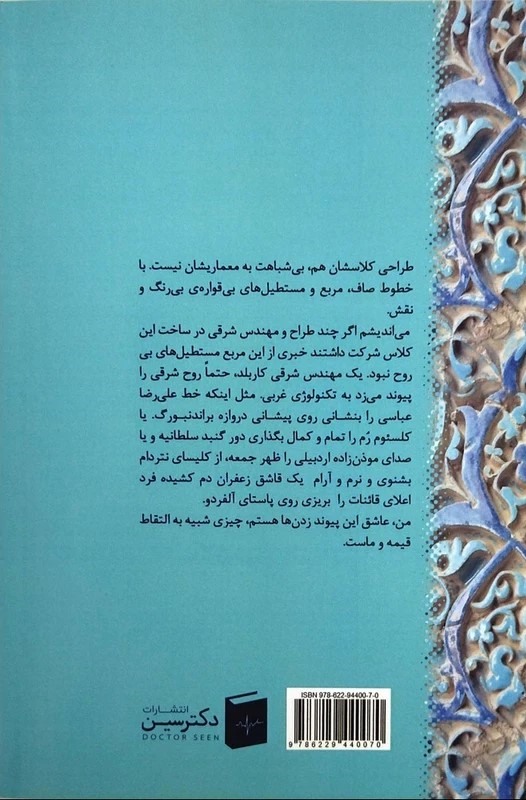 طراحی کلاسشان هم، بی‌شباهت به معماریشان نیست. با
خطوط صاف، مربع و مستطیل‌های بی‌قواره‌ی بی‌رنگ و
نقش.
می‌اندیشم اگر چند طراح و مهندس شرقی در ساخت این
کلاس شرکت داشتند خبری از این مربع مستطیل‌های بی
روح نبود. یک مهندس شرقی کاربلد، حتماً روح شرقی را
پیوند می‌زد به تکنولوژی غربی. مثل اینکه خط علی‌رضا
عباسی را بنشانی روی پیشانی دروازه براندنبورگ. یا
کلسئوم رُم را تمام و کمال بگذاری دور گنبد سلطانیه و یا
صدای موذن‌زاده اردبیلی را ظهر جمعه، از کلیسای نتردام
بشنوی و نرم و آرام یک قاشق زعفران دم کشیده فرد
اعلای قائنات را بریزی روی پاستای آلفردو.
من، عاشق این پیوند زدن‌ها هستم، چیزی شبیه به التقاط
قیمه و ماست.
انتشارات
دکترسین
DOCTOR SEEN
ISBN 978-622-94400-7-0
9 786229 440070